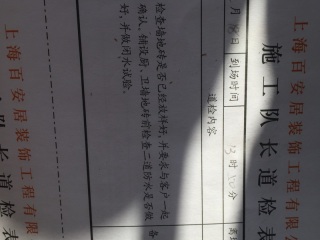 上海百安居装饰工程有限公
施工队长道检表
月 日 到场时间 13 时 分 离
道检内容
检查墙地砖是否已经放样好，并要求与客户一起
确认，铺设厨、卫墙地砖前检查二道防水是否做
好，并做闭水试验。
备
上海百安居装饰工程有限
队长道检表